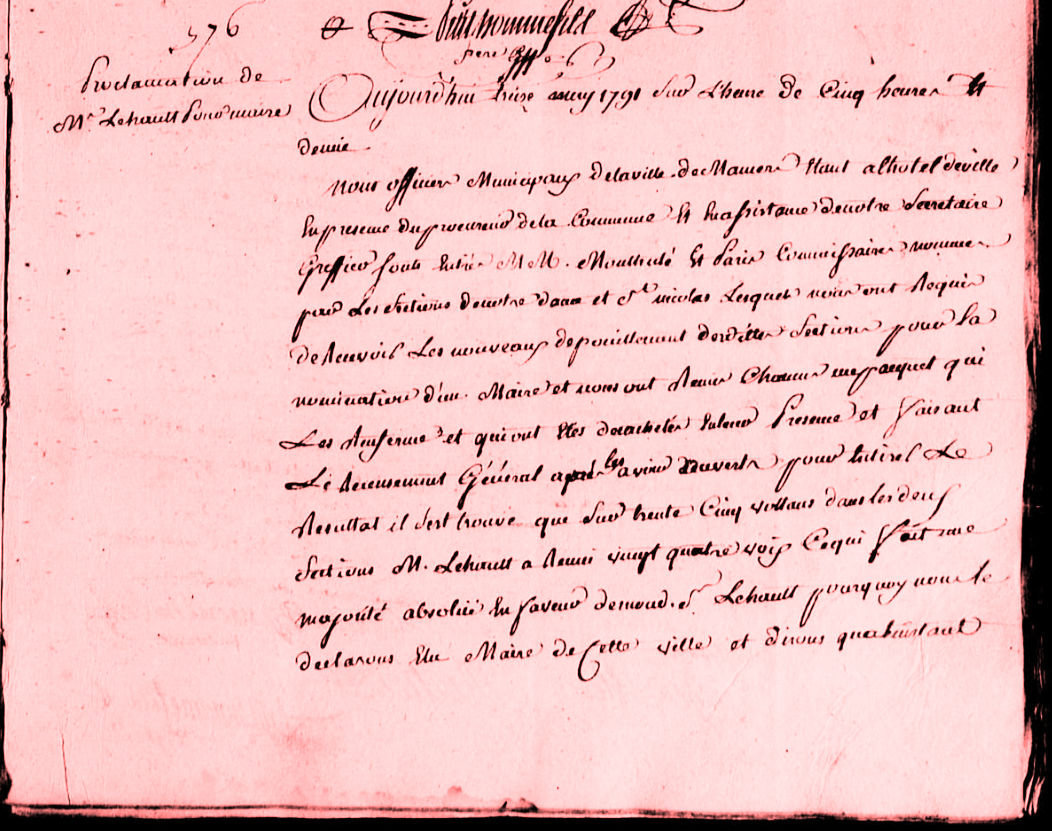 576
Proclamation de
Mr. Lehault pour maire
Aujourd'hui treize mars 1791 sur l'heure de Cinq heures Et
demie
nous officiers Municipaux delaville de Mamers Etant alhotel deville
En presence du procureur dela Commune Et En assistance denotre Secretaire
Greffier sont Entrés MM. Et Paris Commissaires nommés
par Les sections denotre dame et St. nicolas Lesquels nous ont Requis
de Recevoir Les nouveaux depouillement desdittes Sections pour la
nomination d'un Maire et nous ont Remis Chacun un pacquet qui
Les Renferme et qui ont Etés decachetés En leur Presence et faisant
Le Recensement Général après les avoir ouverts pour En tirer Le
Resultat il s'est trouvé que sur trente Cinq vottans dans les deux
Sections M. Lehault a Reuni vingt quatre voix Cequi fait une
majorité absolüe En faveur demond. Sr. Lehault pourquoy nous le
declarons Elu Maire de Cette ville et disons qua linstant